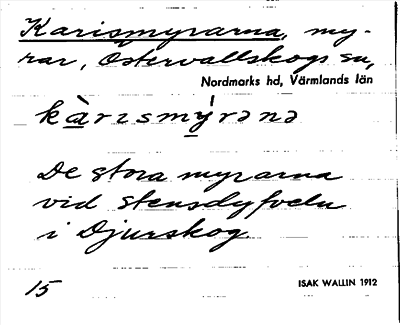 Karismyrarna, my-
rar, Östervallskogs sn,
Nordmarks hd, Värmlands län
kàrısmýrənə
De stora myrarna
vid Stensdyfveln
i Djurskog.
15 ISAK WALLIN 1912